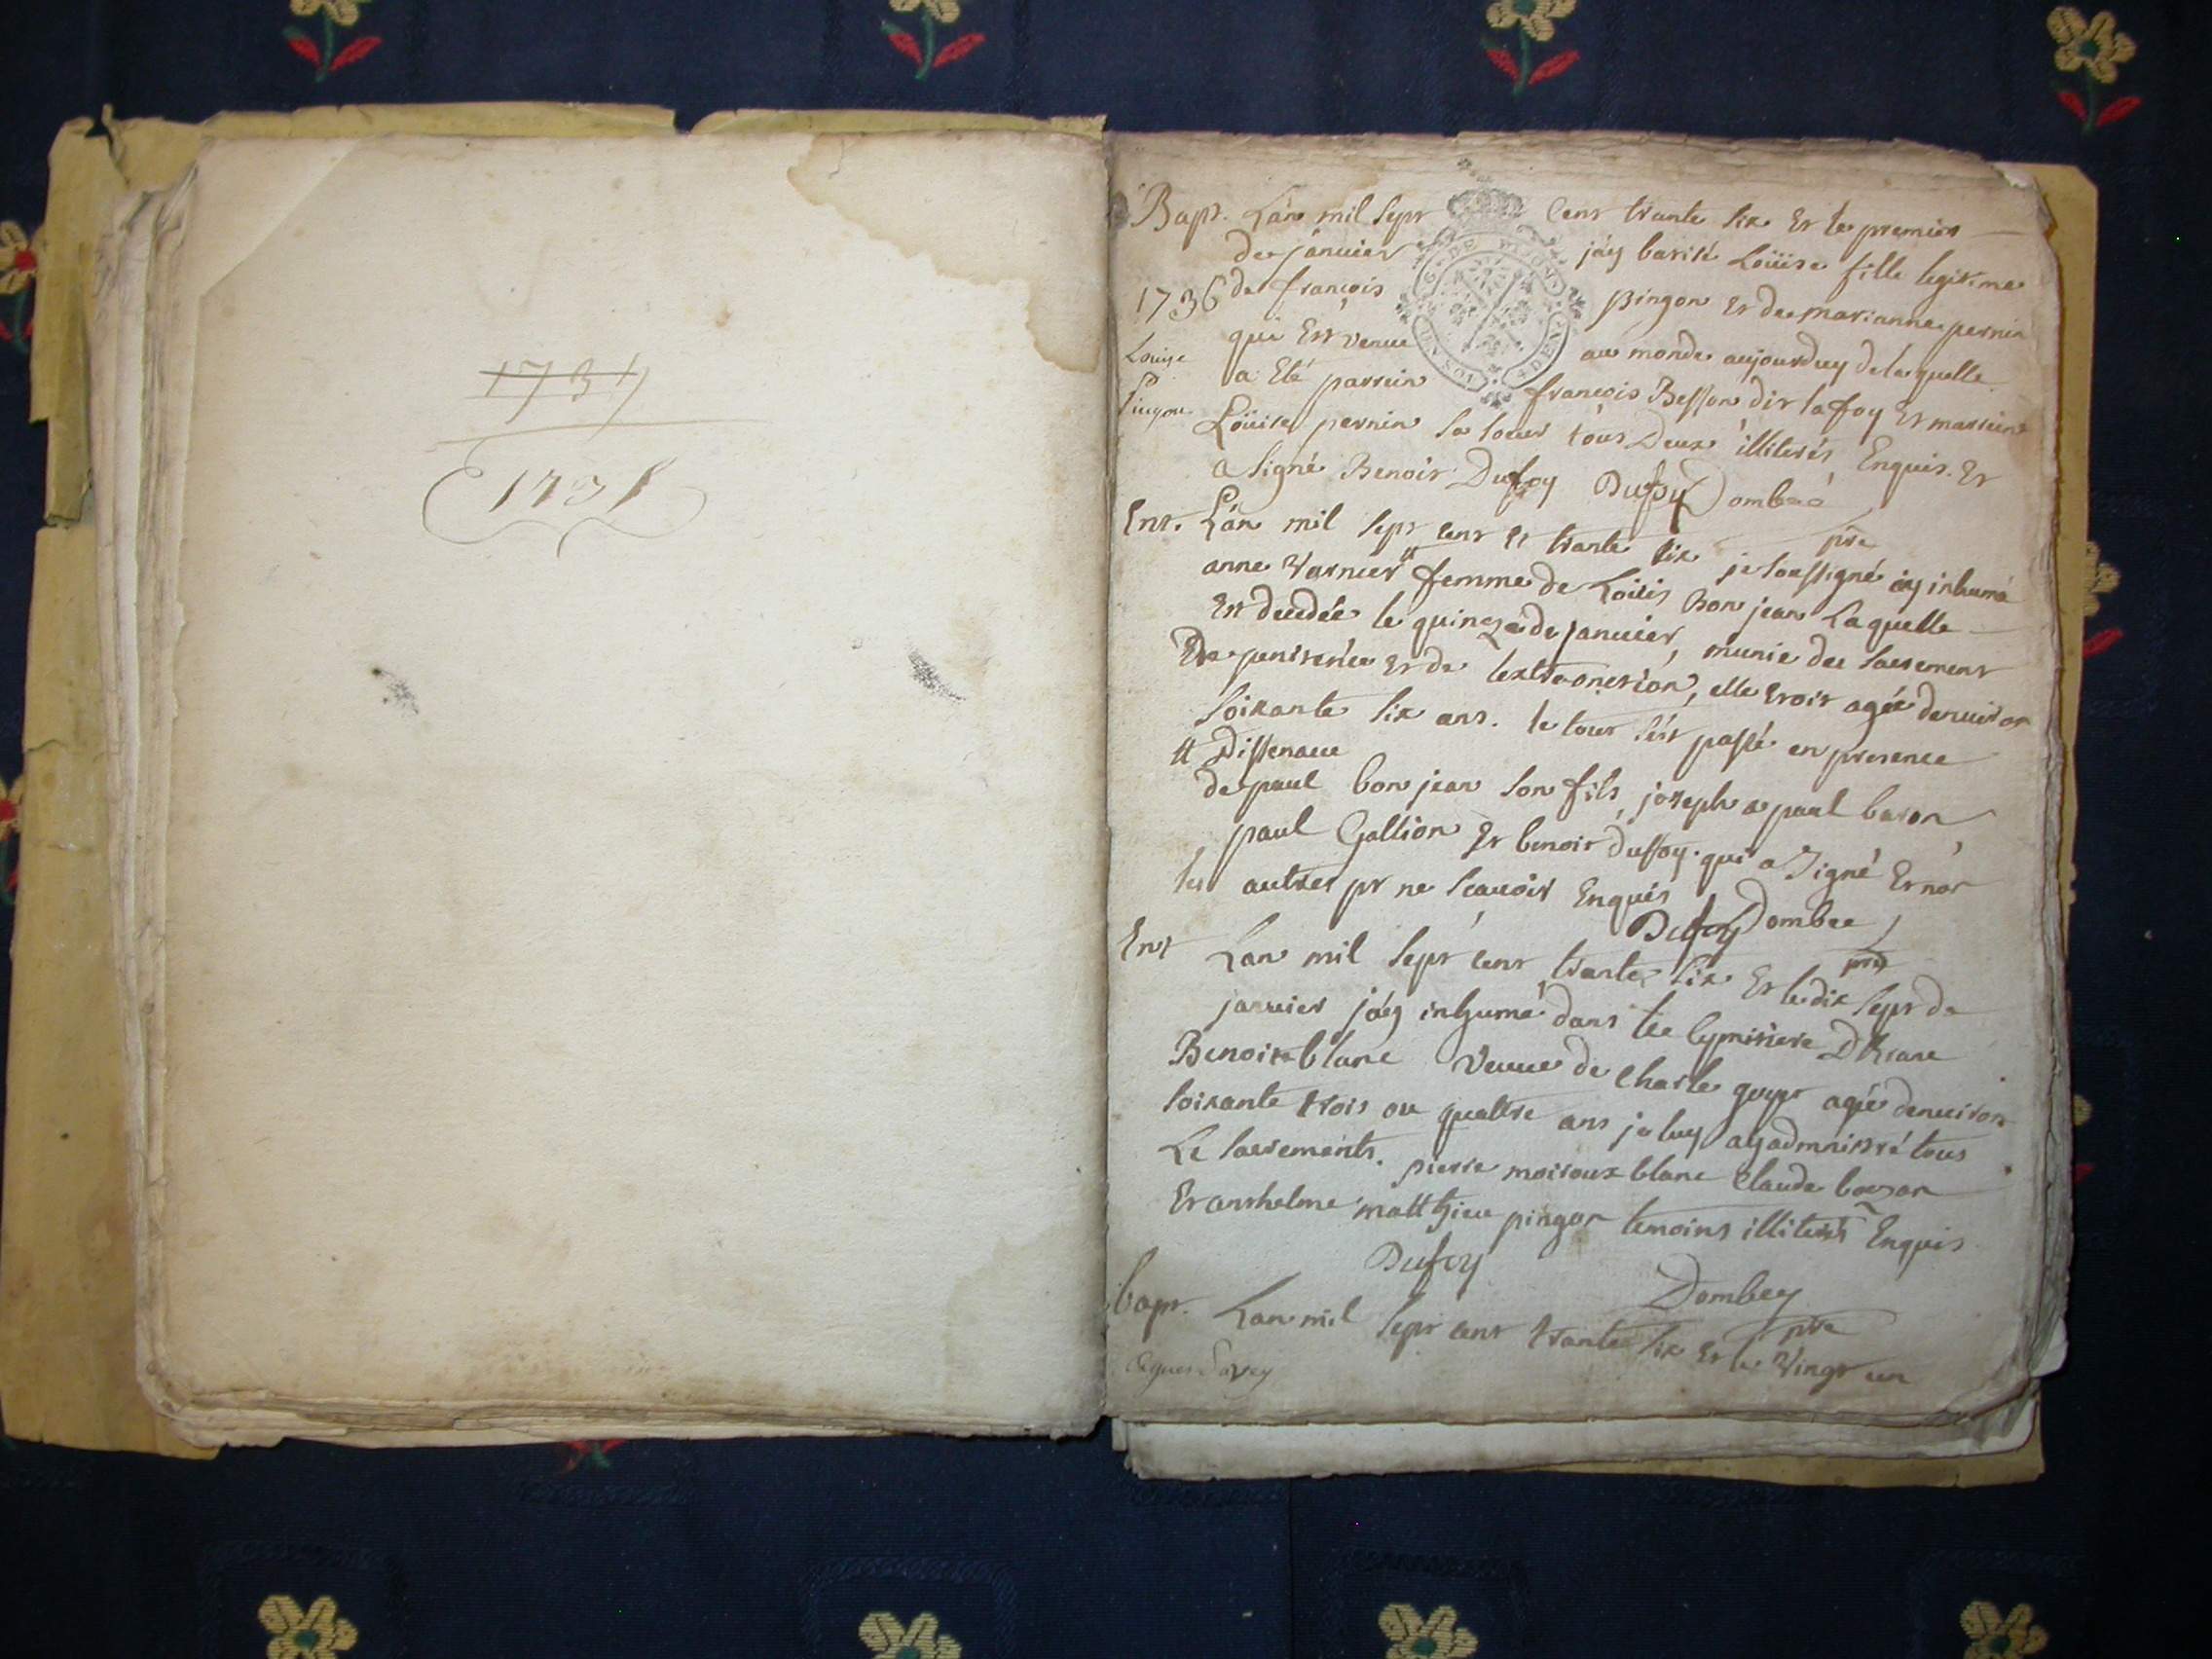 1731
Bapt. Lan mil sept cent trante six et le premier
de janvier jay batisé Loüise fille legitime
1736 de françois pingon et de marianne pernin
Louise
qui est venue au monde aujourduy de laquelle
Pingon
a eté parrein françois Besson dit lafoy et marreine
Loüise pernin sa soeur tous deux illiterés enquis. et
a signé Benoit Dufoy Dufoy Dombeé
pre
Ent. Lan mil sept cent et trante six je soussigné ay inhumé
anne Varnier # femme de Loüis Bon jean Laquelle
est decedée le quinze de janvier, munie des sacrement
de penitence et de lextreonction, elle etoit agée denviron
soixante six ans. le tout s'est passé en presence
# Dissenaue
de paul bon jean son fils, joseph a paul baron
paul Gallion et benoit dufoy. qui a signé et non
les autres pr ne scavoir Enquis
Dufoy Dombee
pre
Ent Lan mil sept cent trante six et le dix sept de
janvier jay inhumé dans le cymitiere
Benoite blanc veuve de charle guyot agée denviron
soixante trois ou quattre ans je luy ay admnistré tous
Le sacrements. pierre moiroux blanc claude bozon
et anthelme matthieu pingon temoins illiterés Enquis
Dufoy
Dombey
pre
bapt. Lan mil sept cent trante six et le vingt un
Agnes Savey